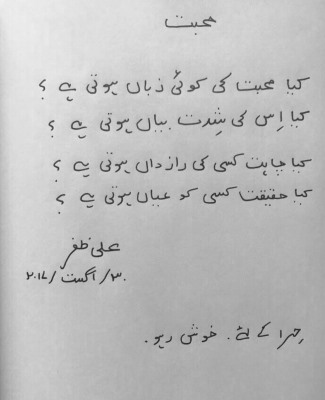 محبت
کیا محبت کی کوئی زباں ہوتی ہے ؟
کیا اِس کی شِدت بیاں ہوتی ہے ؟
کیا چاہت کسی کی راز داں ہوتی ہے ؟
کیا حقیقت کسی کو عیاں ہوتی ہے ؟
علی ظفر
۳۰/اگست/۲۰۱۷
کے لئے. خوش رہو.